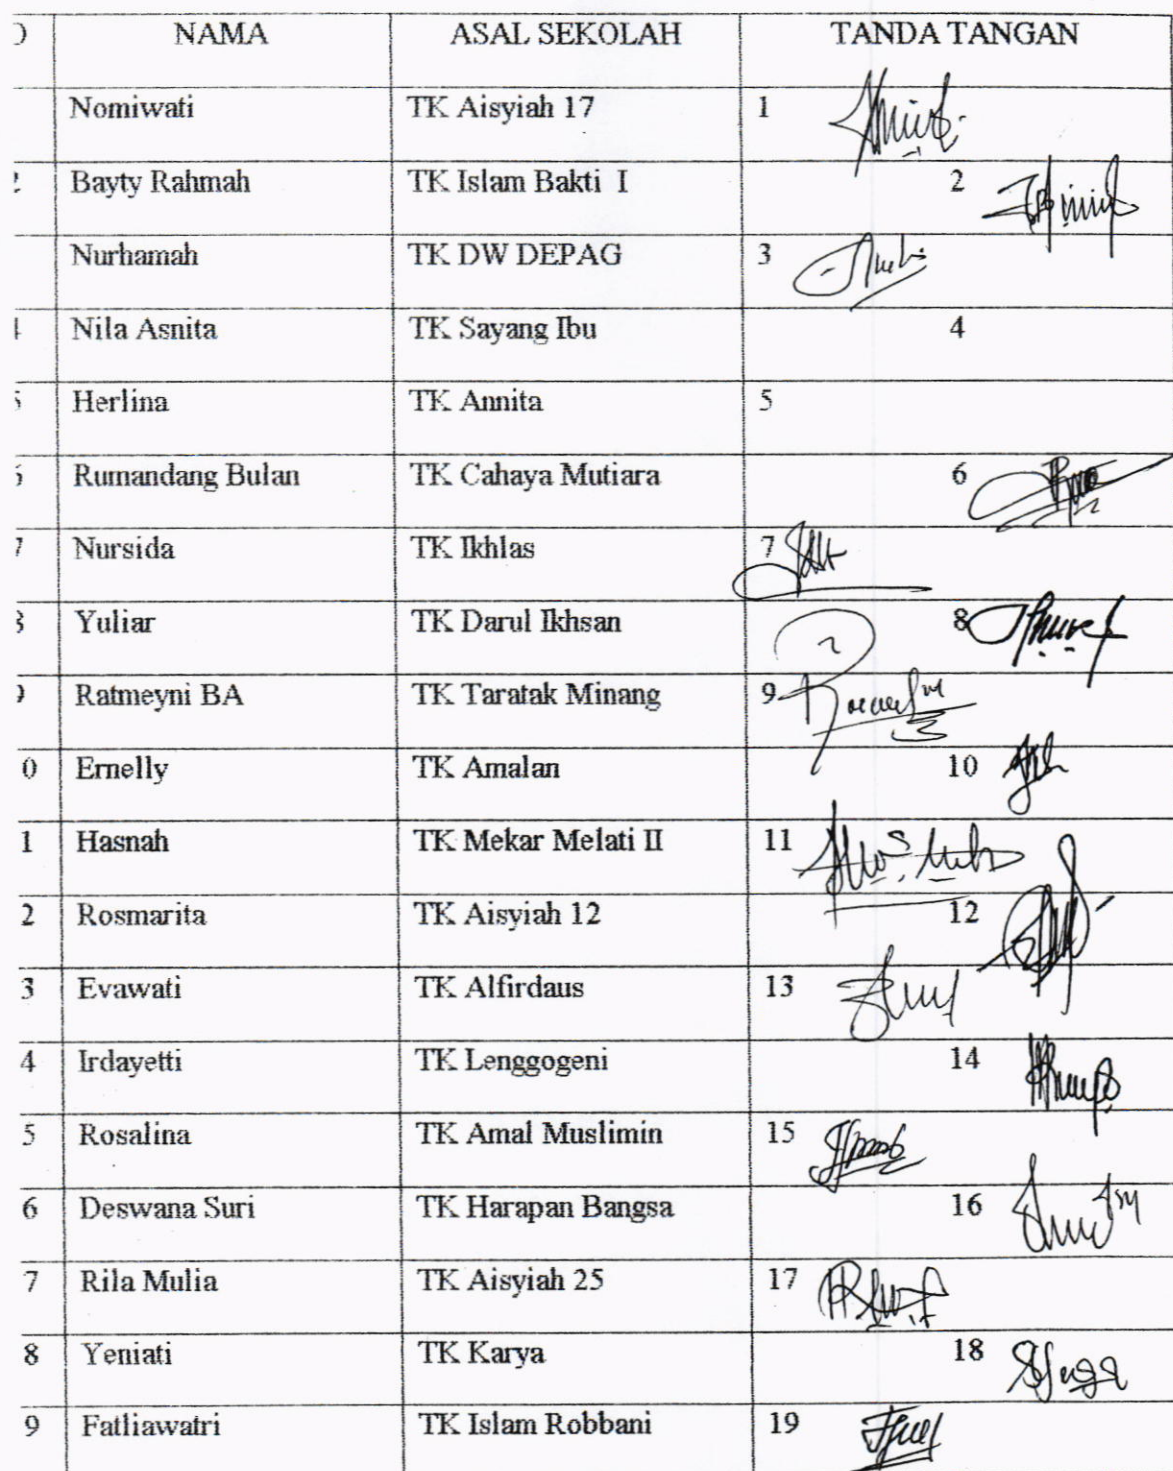 NAMA ASAL SEKOLAH TANDA TANGAN
Nomiwati TK Aisyiah 17 1
2 Bayty Rahmah TK Islam Bakti I 2
Nurhamah TK DW DEPAG 3
4 Nila Asnita TK Sayang Ibu 4
5 Herlina TK Annita 5
6 Rumandang Bulan TK Cahaya Mutiara 6
7 Nursida TK Ikhlas 7
8 Yuliar TK Darul Ikhsan 8
9 Ratmeyni BA TK Taratak Minang 9
0 Ernelly TK Amalan 10
1 Hasnah TK Mekar Melati II 11
2 Rosmarita TK Aisyiah 12 12
3 Evawati TK Alfirdaus 13
4 Irdayetti TK Lenggogeni 14
5 Rosalina TK Amal Muslimin 15
6 Deswana Suri TK Harapan Bangsa 16
7 Rila Mulia TK Aisyiah 25 17
8 Yeniati TK Karya 18
9 Fatliawatri TK Islam Robbani 19